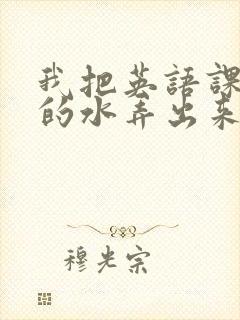 我把英語課
的水弄出来
穆光宗